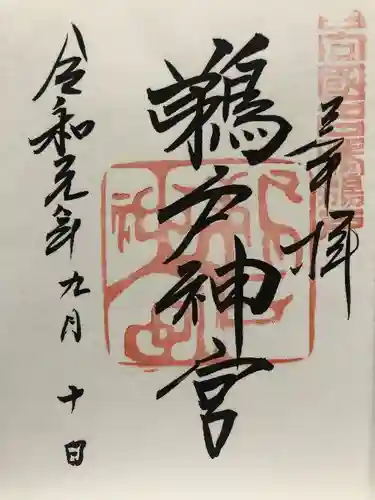 奉拝
鵜戸神宮
令和元年九月十日